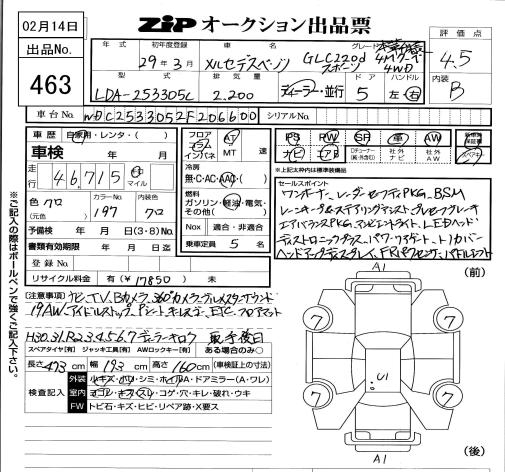 02月14日
ZIP オークション出品票
出品No.
463
年式 初年度登録 車名 グレード
29年3月 メルセデスベンツ GLC220d 4Mクーペ
スポーツ 4WD
評価点
4.5
型式 排気量 ドア ハンドル
LDA-253305C 2.200 ディーラー・並行 5 左・右
内装
B
車台No. WDC2533052F206600 シリアルNo.
車歴 自家用・レンタ・( )
車検 年 月
走行 46,715 km マイル
色 クロ 197 内装色 クロ
(元色) カラーNo.
予備検 年 月 日 (3・8) No.
書類有効期限 年 月 日迄
登録No.
リサイクル料金 有 (¥17850) 無
フロア コラム インパネ
AT
MT 速
冷房
無・C・AC・AAC・( )
燃料
ガソリン・軽油・電気・
その他( )
Nox 適合・非適合
乗車定員 5 名
PS PW SR 革 AW
ナビ エアB
※上記太枠内は標準装備品
セールスポイント
ワンオーナー、レーダーセーフティPKG、BSM
アンビエントライト、LEDヘッド
ディストロニックプラス、パワーリヤゲート、トノカバー
ヘッドアップディスプレイ、FRパワーシート
[注意事項] ナビ、TV、Bカメラ、360°カメラ
19AW、アイドルストップ、Pシート、キーレスゴー、ETC、フロアマット
H30.31.R2.3.4.5.6.7 ディーラーキロク 取予後日
スペアタイヤ[有] ジャッキ工具[有] AWロックキー[有] ある場合のみ○
長さ 473 cm 幅 193 cm 高さ 160 cm (車検証上の寸法)
検査記入
外装 ルキズ・ホソ・シミ・ホイルA・ドアミラー(A・ワレ)
室内 ヨゴレ・キズ・スレ・コゲ・穴・キレ・破れ・ウキ
FW トビ石・キズ・ヒビ・リペア跡・X要ス
※ご記入の際はボールペンで強くご記入下さい。
A1 (前)
7 7
U1
7 7
A1 (後)